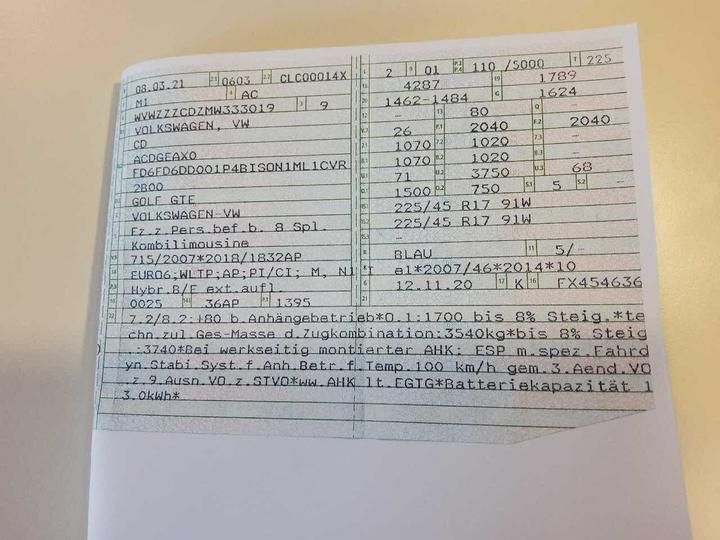 08.03.21 2.1 0603 2.2 CLC00014X
M1 4 AC
WVWZZZCDZMW333019 3 9
VOLKSWAGEN, VW
CD
ACDGEAX0
FD6FD6DD001P4BISON1ML1CVR
2B00
GOLF GTE
VOLKSWAGEN-VW
Fz.z.Pers.bef.b. 8 Spl.
Kombilimousine
715/2007*2018/1832AP
EURO6;WLTP;AP;PI/CI; M, N1 I
Hybr.B/E ext.aufl.
0025 36AP P.1 1395
2 9 01 P.2 P.4 110 /5000 T 225
4287 19 1789
1462-1484 G 1624
- 13 80 Q -
26 F.1 2040 F.2 2040
1070 7.2 1020 7.3 -
1070 8.2 1020 -
71 U.2 3750 U.3 68
1500 O.2 750 S.1 5 S.2 -
225/45 R17 91W
225/45 R17 91W
-
R BLAU 11 5/-
e1*2007/46*2014*10
6 12.11.20 17 K 16 FX454636
22 7.2/8.2:+80 b.Anhängebetrieb*O.1:1700 bis 8% Steig.*te
chn.zul.Ges-Masse d.Zugkombination:3540kg*bis 8% Steig
.:3740*Bei werkseitig montierter AHK: ESP m.spez.Fahrd
yn.Stabi.Syst.f.Anh.Betr.f.Temp.100 km/h gem.3.Aend.VO
.z.9.Ausn.VO.z.STVO*ww.AHK lt.EGTG*Batteriekapazität 1
3.0kWh*